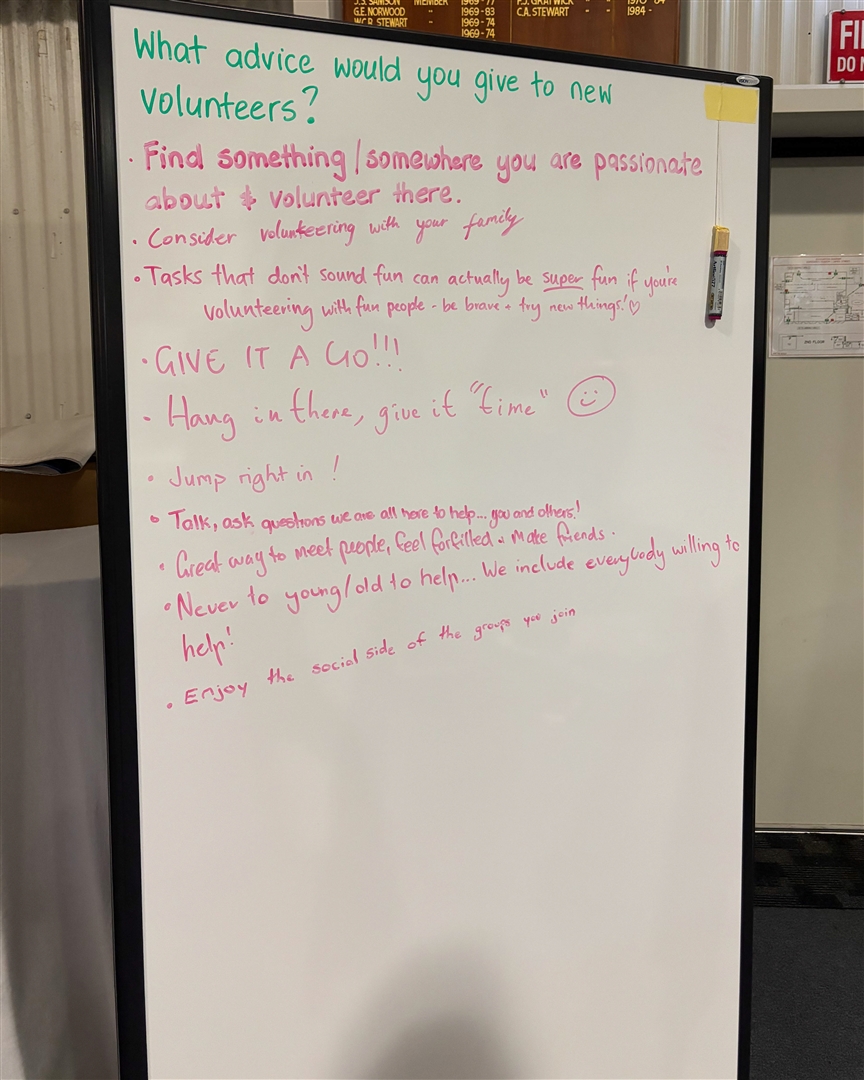 J.S. SAMSON MEMBER 1969-77
G.E. NORWOOD " 1969-83 C.A. STEWART " " 1984 -
W.C.R. STEWART " 1969-74
1969-74
FI
DO N
What advice would you give to new
volunteers?
· Find something/somewhere you are passionate
about & volunteer there.
· Consider volunteering with your family
· Tasks that don't sound fun can actually be super fun if you're
volunteering with fun people - be brave + try new things!♡
· GIVE IT A GO!!!
- Hang in there, give it "time" ☺
· Jump right in !
· Talk, ask questions we are all here to help... you and others!
· Great way to meet people, feel forfilled & make friends.
· Never to young/old to help... We include everybody willing to
help!
· Enjoy the social side of the groups you join
2ND FLOOR